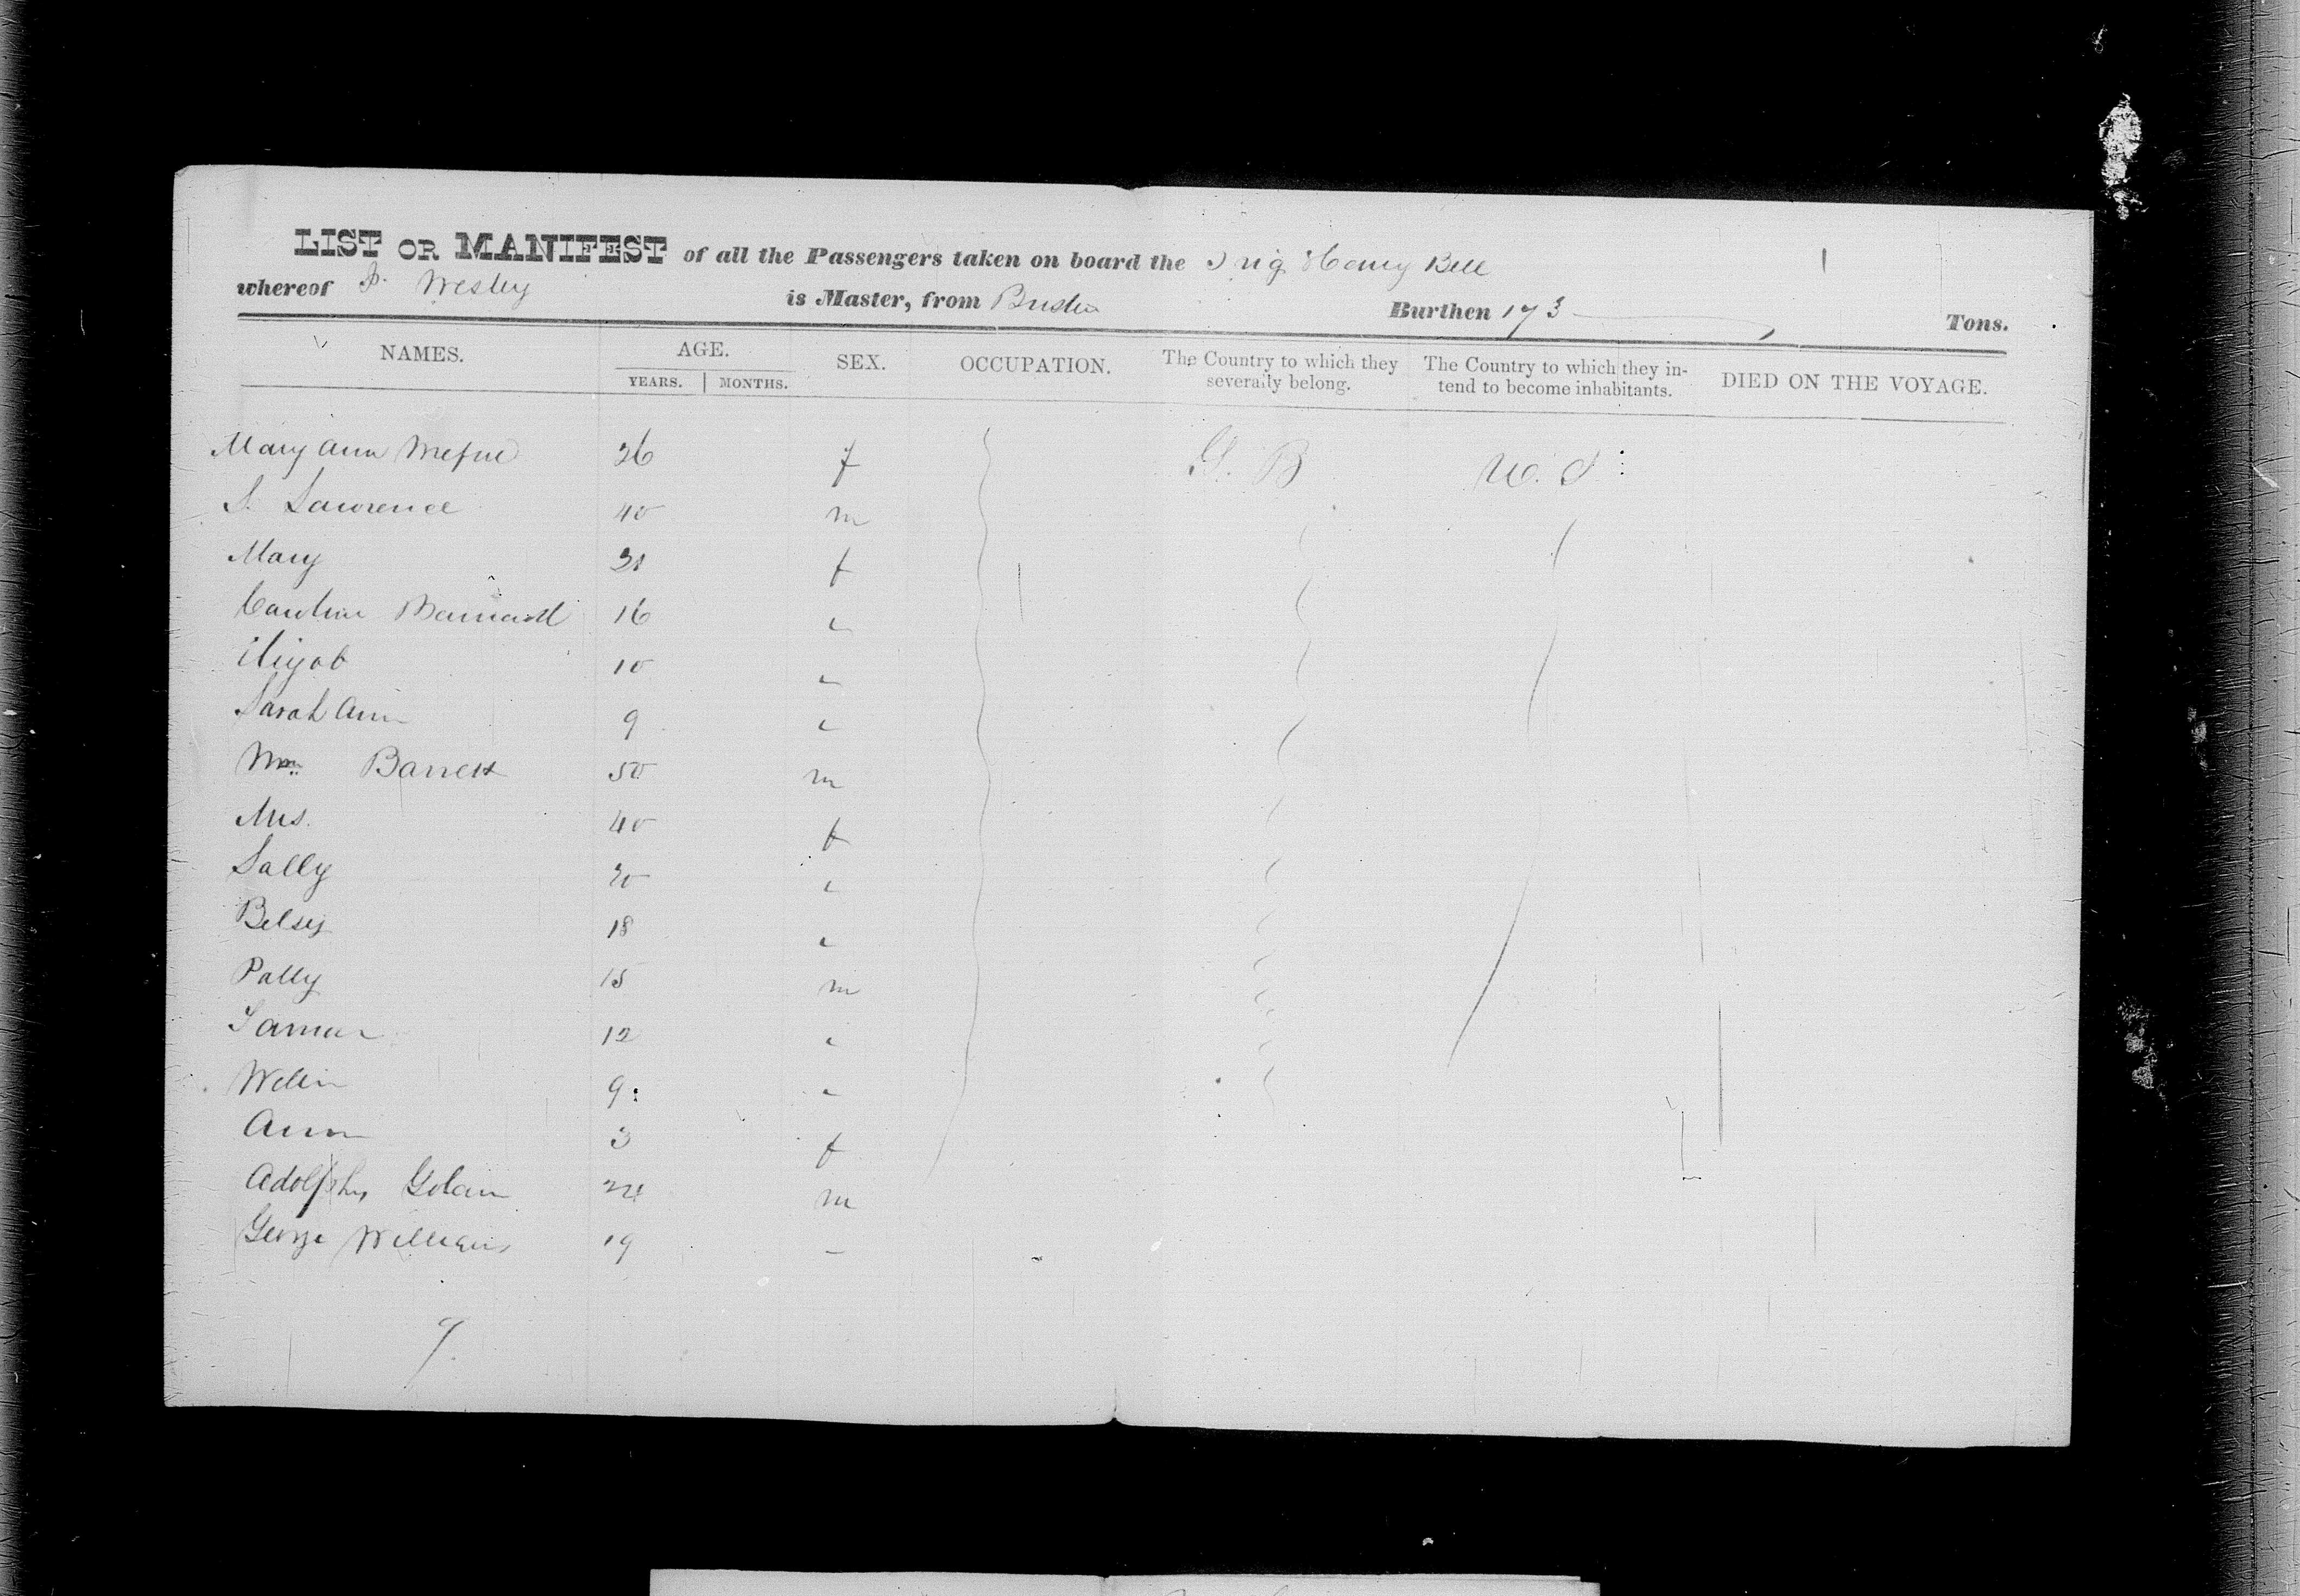 LIST OR MANIFEST of all the Passengers taken on board the Brig Henry Bell
whereof J. Wesley is Master, from Burthen 173 Tons.
NAMES. AGE. SEX. OCCUPATION. The Country to which they severally belong. The Country to which they intend to become inhabitants. DIED ON THE VOYAGE.
YEARS. MONTHS.
Mary Ann 26 f G. B U. S
S. Lawrence 40 m
Mary 31 f
Caroline Barnard 16 "
10 "
Sarah Ann 9 "
Wm. Barrett 50 m
Mrs. 40 f
Sally 20 "
Betsy 18 "
Polly 15 m
12 "
9 "
Ann 3 f
Adolphus 24 m
George Williams 19 "
9